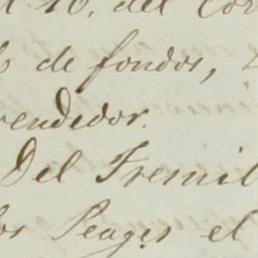 10. del Cor
de fondos,
vendedor.
Del Fremil
los Peages el